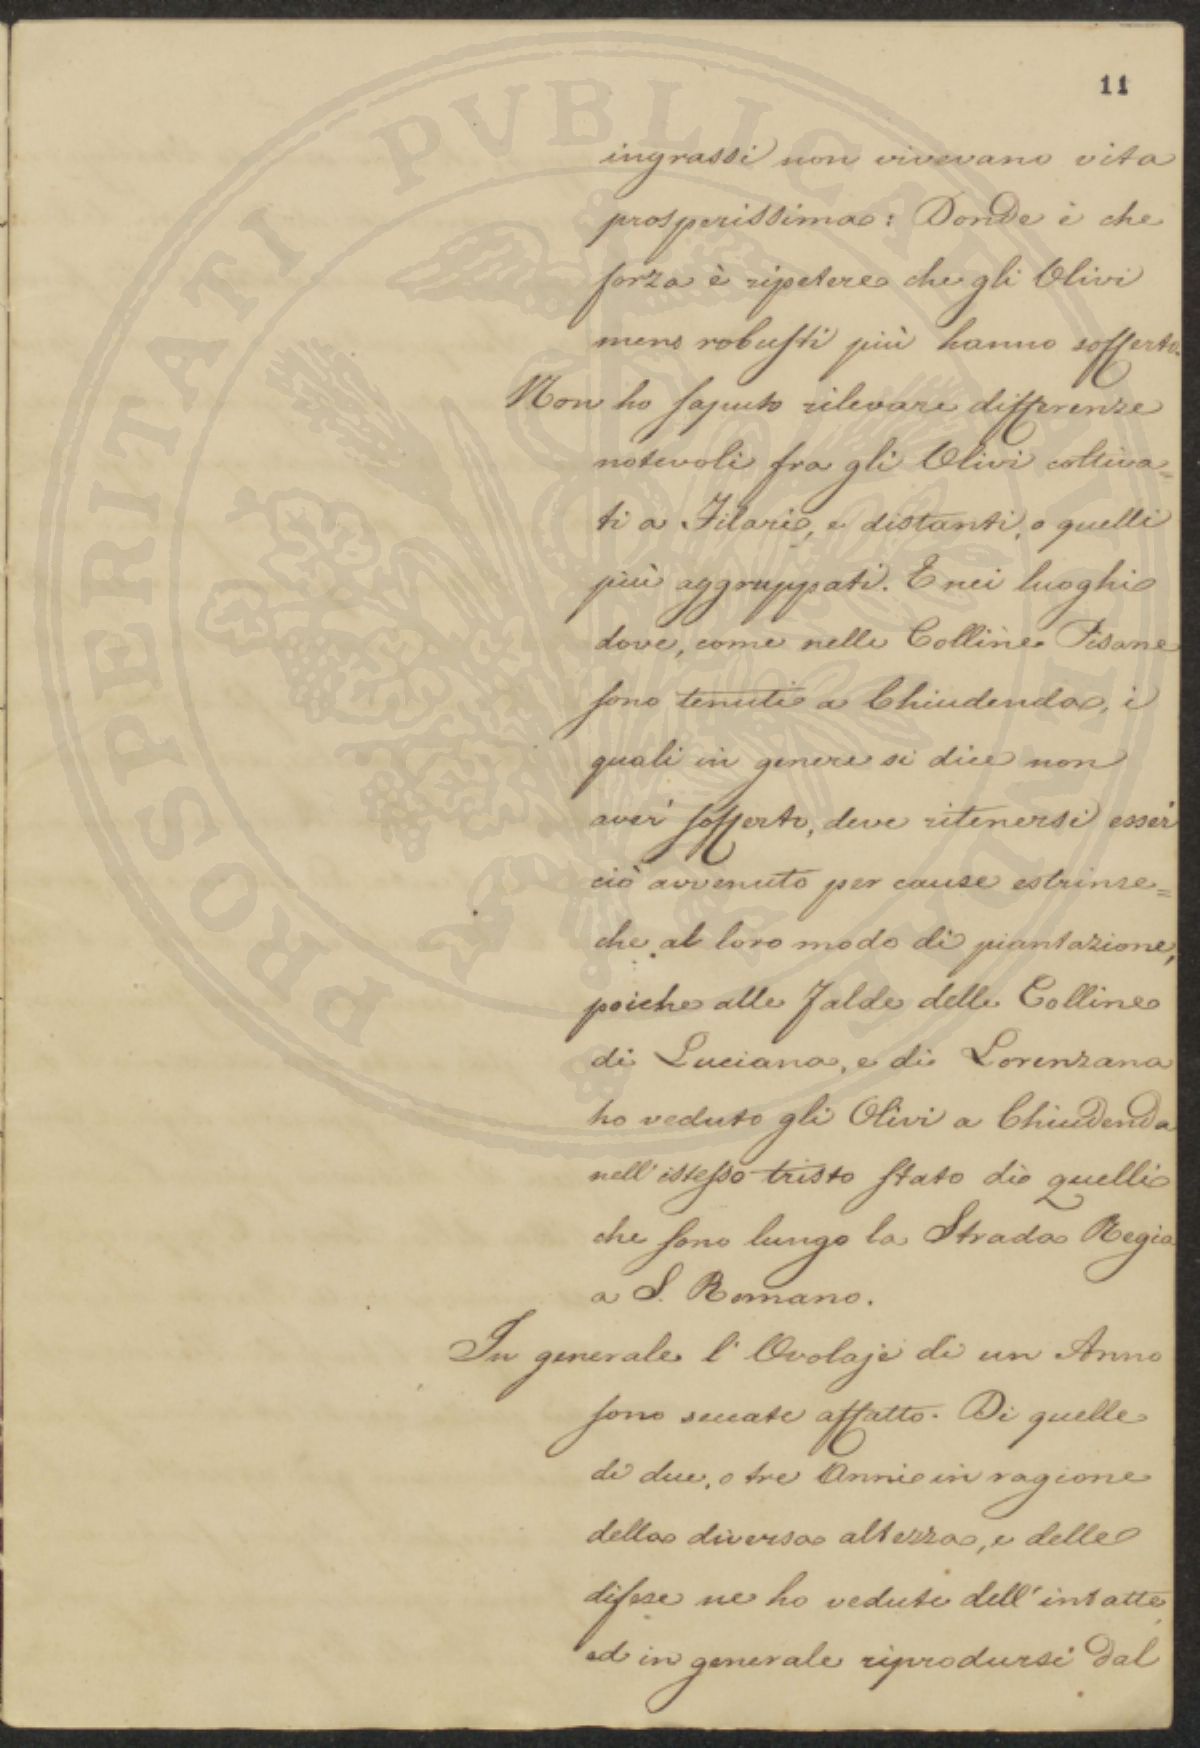 11
ingrassi non vivevano vita
prosperissima: Donde è che
forza è ripetere che gli Olivi
meno robusti più hanno sofferto.
Non ho saputo rilevare differenze
notevoli fra gli Olivi coltiva=
ti a Filari, e distanti, o quelli
più aggruppati. E nei luoghi
dove, come nelle Colline Pisane
sono tenuti a Chiudenda, i
quali in genere si dice non
aver sofferto, deve ritenersi esser
ciò avvenuto per cause estrinse=
che al loro modo di piantazione,
poiche alle falde delle Colline
di Luciana, e di Lorenzana
ho veduto gli Olivi a Chiudenda
nell'istesso tristo stato di quelli
che sono lungo la Strada Regia
a S. Romano.
In generale l'Ovolaje di un Anno
sono seccate affatto. Di quelle
di due, o tre Anni in ragione
della diversa altezza, e delle
difese ne ho vedute dell'intatte,
ed in generale riprodursi dal
PROSPERITATI PVBLICAE